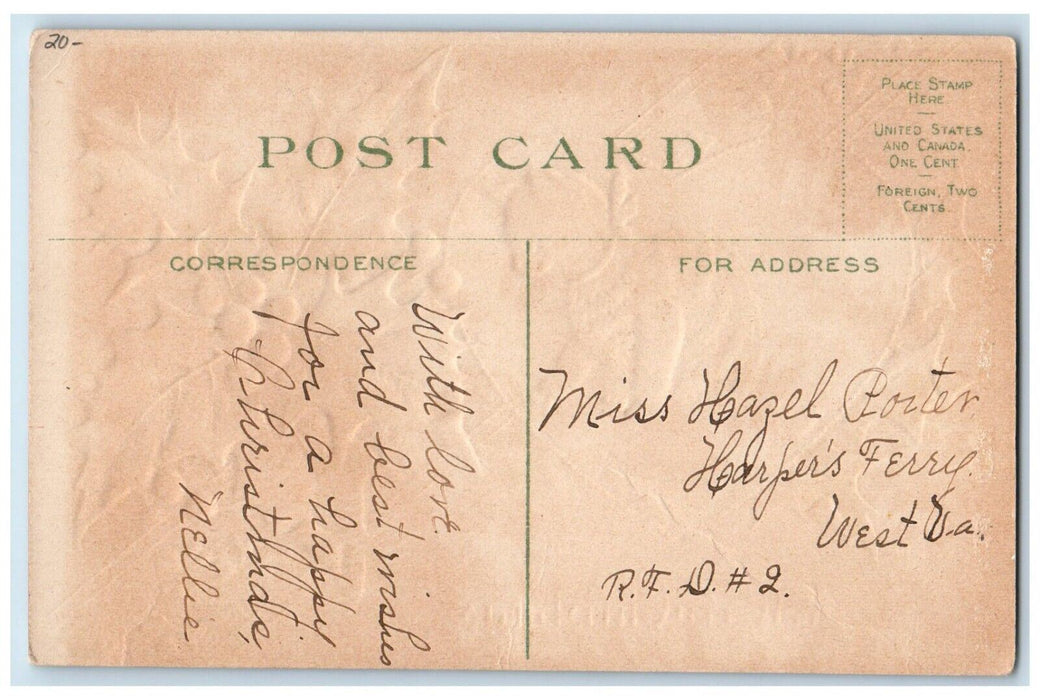 20-
POST CARD
PLACE STAMP
HERE
UNITED STATES
AND CANADA,
ONE CENT
FOREIGN, TWO
CENTS
CORRESPONDENCE
With love
and best wishes
for a happy
Christmas,
Nellie
FOR ADDRESS
Miss Hazel Porter
Harper's Ferry.
West Va.
R.F.D. # 2.